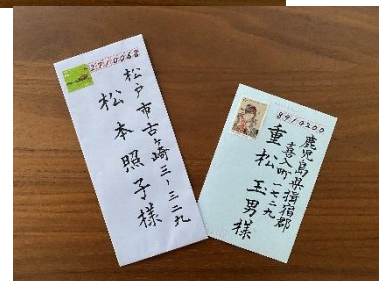 2710068
松戸市古ヶ崎三ー三二九
松本照子様
8910200
鹿児島県揖宿郡
喜入町一七二九
重松玉男様